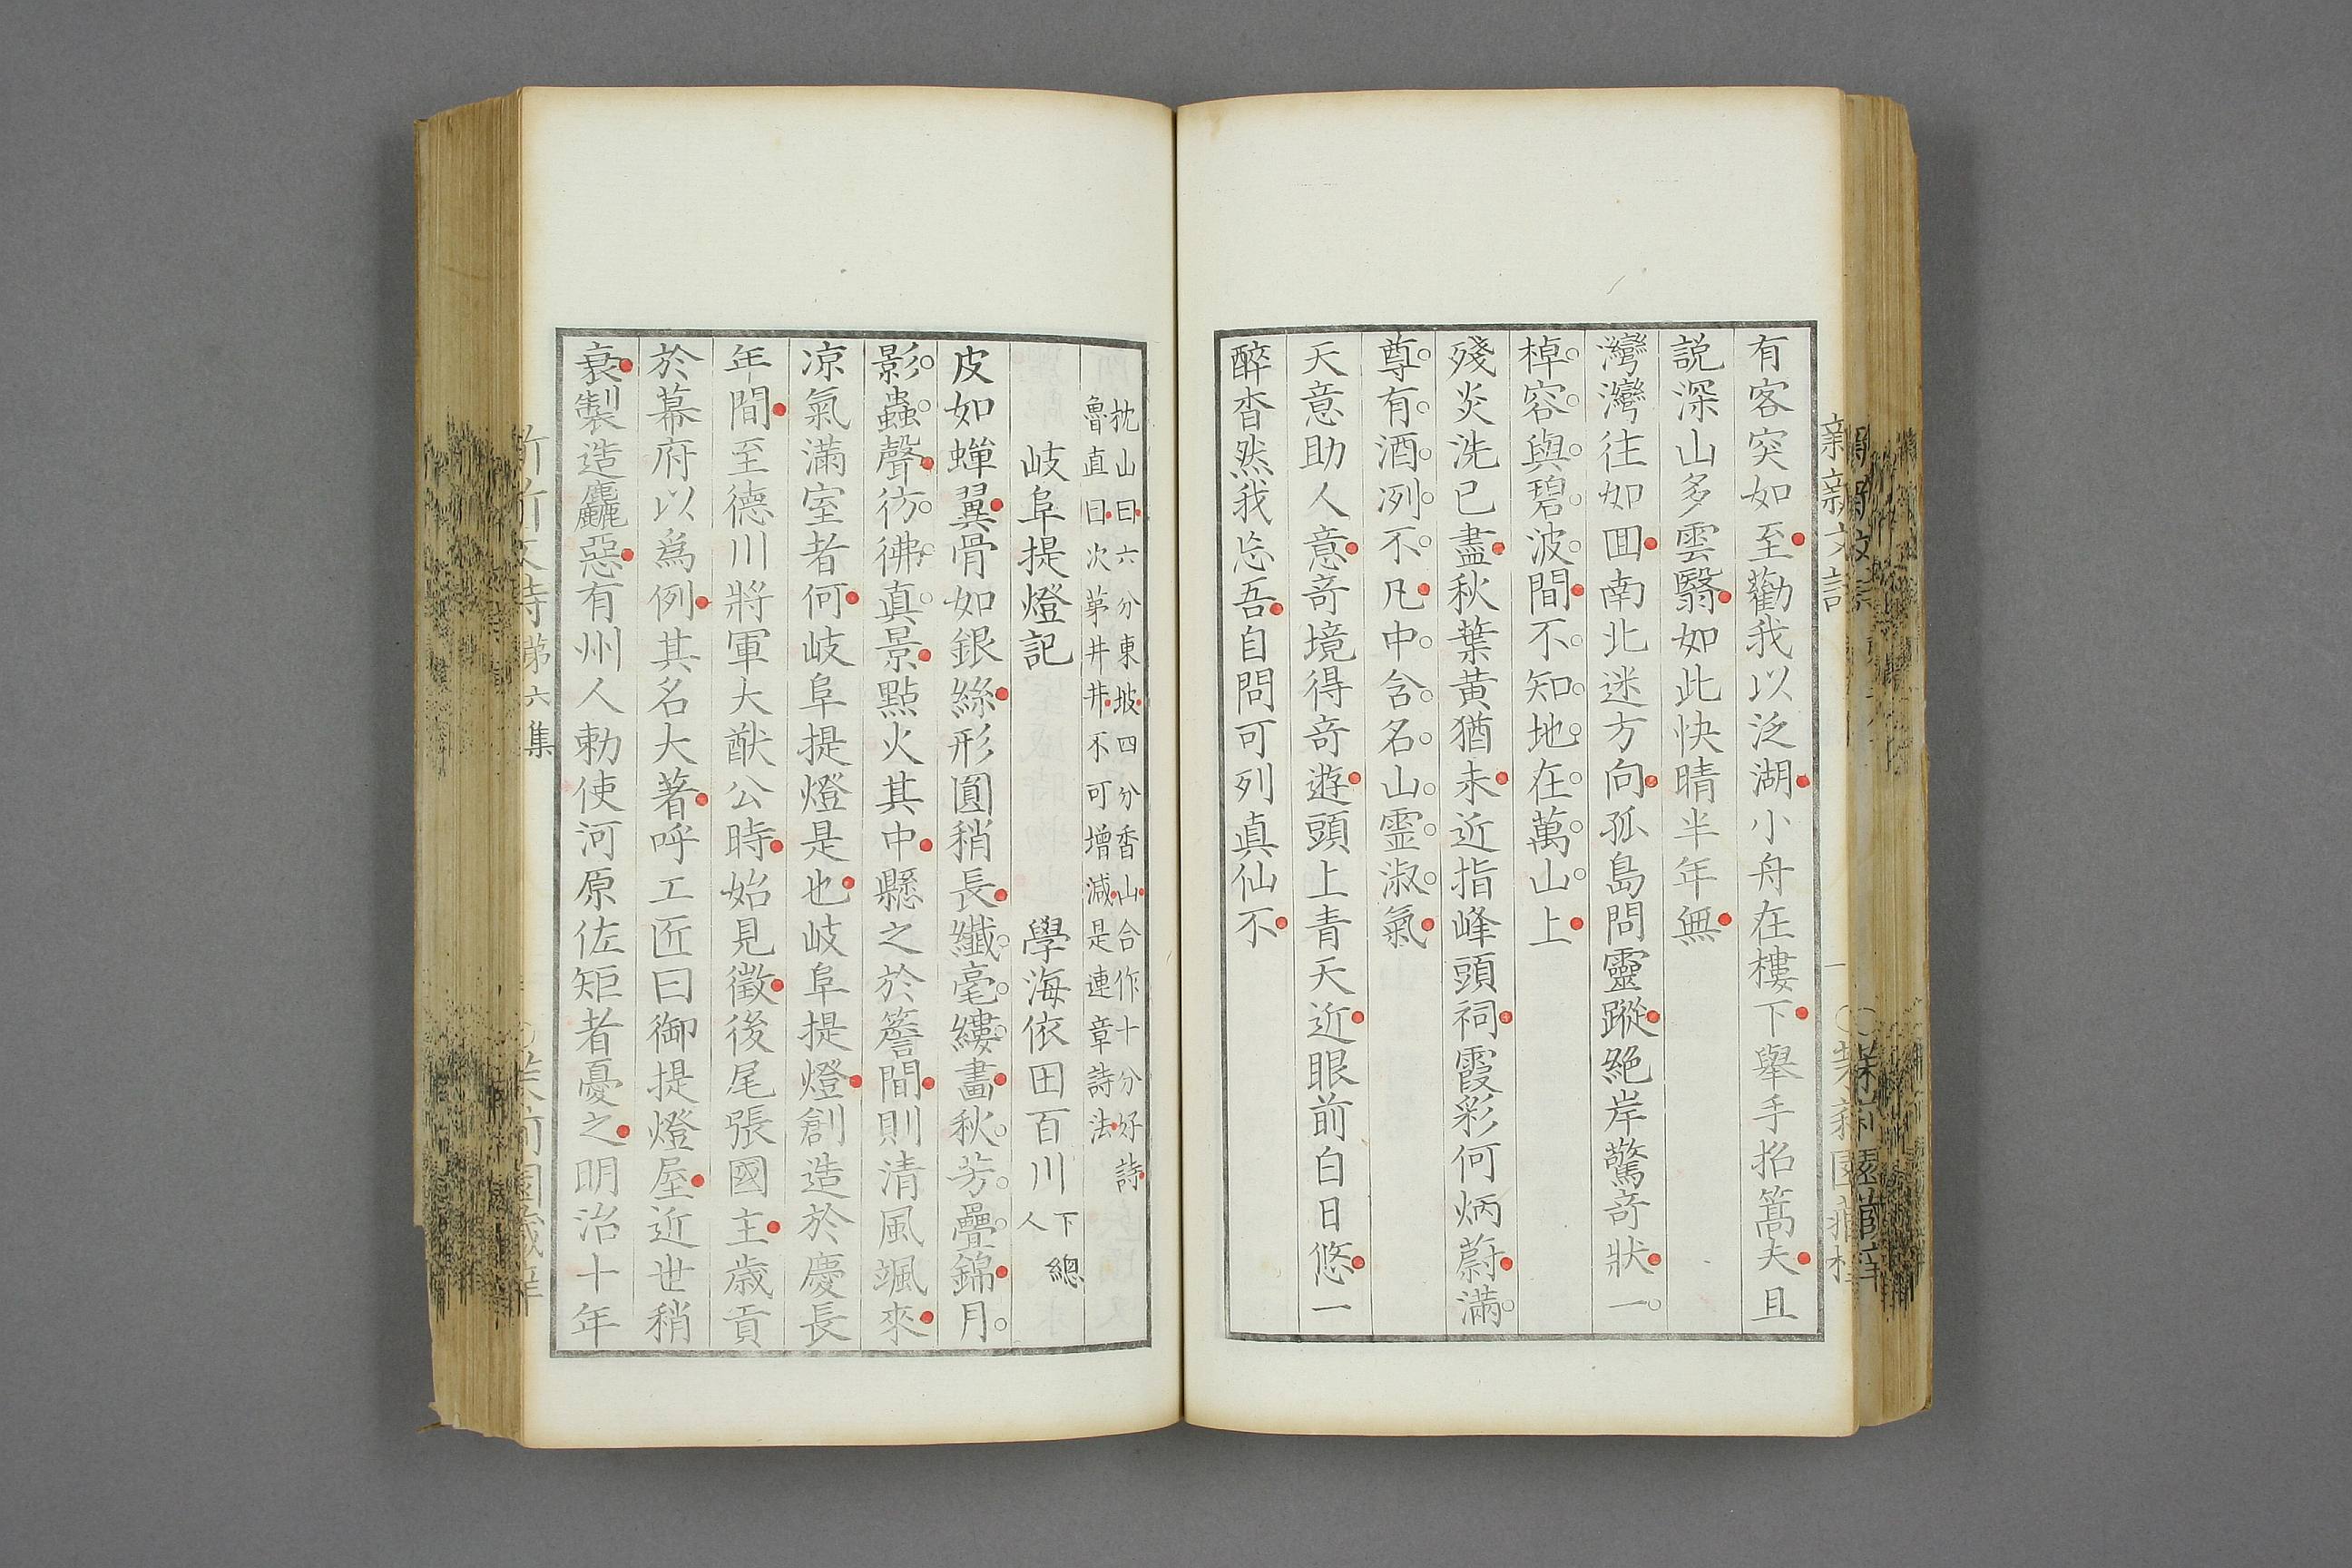 有客突如至勸我以泛湖小舟在樓下舉手招篙夫且
説深山多雲翳如此快晴半年無
灣灣往如囬南北迷方向孤島問靈蹤絕岸驚竒狀一
棹容與碧波間不知地在萬山上
殘炎洗已盡秋葉黃猶未近指峰頭祠霞彩何炳蔚滿
尊有酒冽不凡中含名山霊淑氣
天意助人意竒境得竒遊頭上青天近眼前白日悠一
醉杳然我忘吾自問可列真仙不
枕山曰六分東坡四分香山合作十分好詩
魯直曰次苐井井不可增減是連章詩法
岐阜提燈記
學海依田百川下總人
皮如蟬翼骨如銀絲形圓稍長纖毫縷畫秋芳疊錦月
影蟲聲彷彿真景點火其中懸之於簷間則清風颯來
凉氣滿室者何岐阜提燈是也岐阜提燈創造於慶長
年間至德川將軍大猷公時始見徵後尾張國主歲貢
於幕府以為例其名大著呼工匠曰御提燈屋近世稍
衰製造麤惡有州人勅使河原佐矩者憂之明治十年
第六集